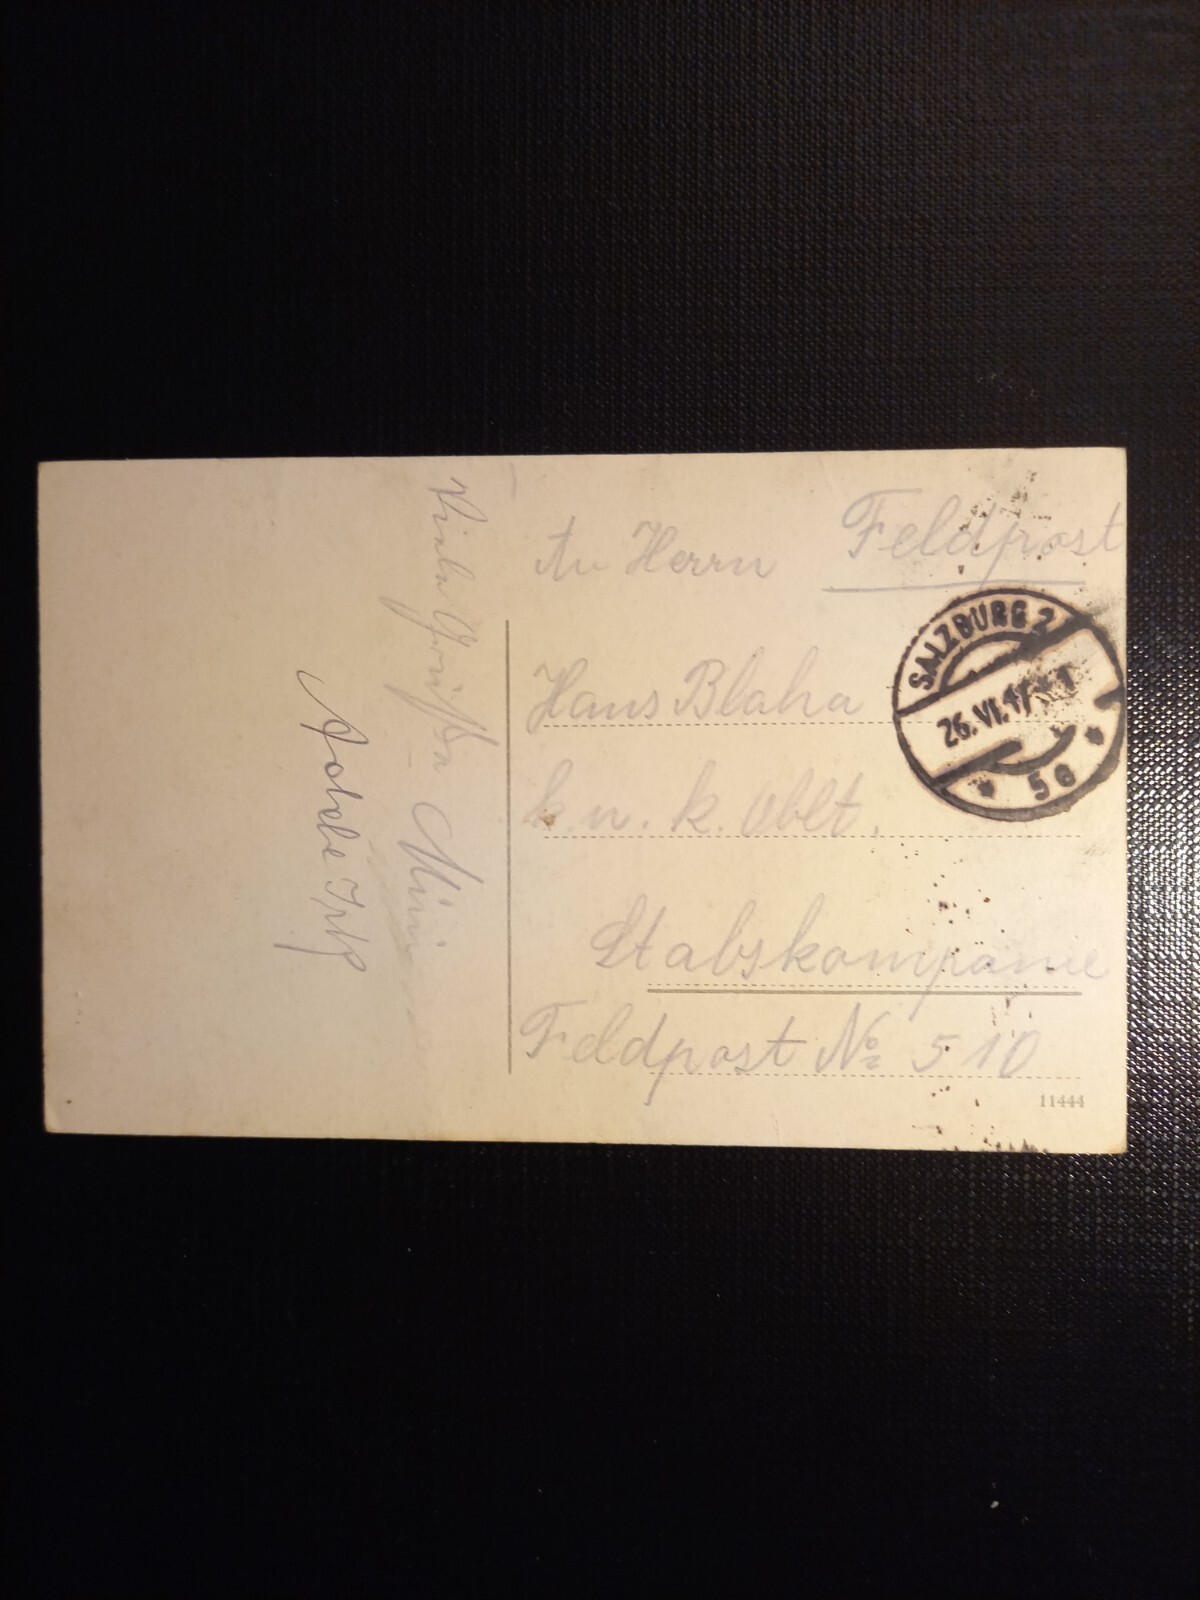 Feldpost
An Herrn
Hans Blaha
k. u. k. Oblt.
Stabskompanie
Feldpost № 510
SALZBURG 2
26. VI. 17
5e
11444
Viele Grüße
Mimi